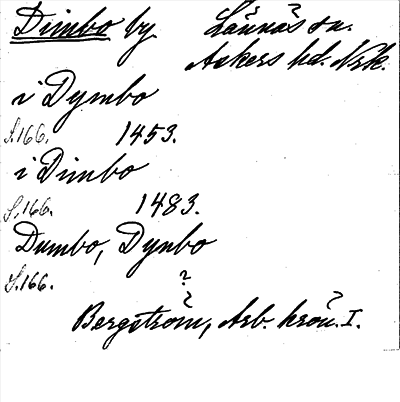 Dimbo by Lännäs sn.
Askers hd. Nrk.
i Dymbo
S.166. 1453.
i Dimbo
S.166. 1483.
Dumbo, Dynbo
S.166. ?
Bergström, Arb. krön. I.